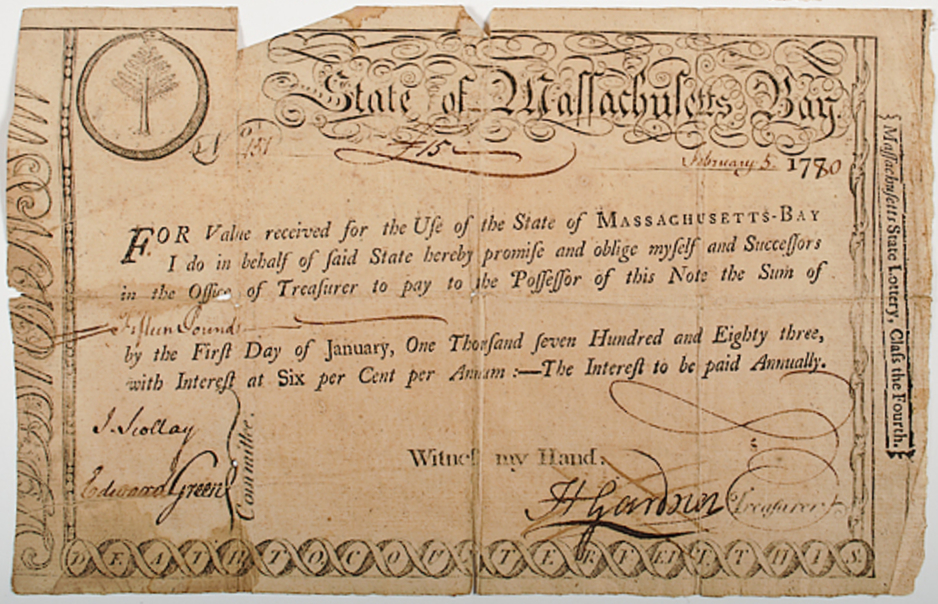 State of Maſſachuſetts Bay.
£ 15
February 5. 1780
FOR Value received for the Uſe of the State of MASSACHUSETTS-BAY
I do in behalf of ſaid State hereby promiſe and oblige myſelf and Succeſſors
in the Office of Treaſurer to pay to the Poſſeſſor of this Note the Sum of
Fifteen Pounds
by the Firſt Day of January, One Thouſand ſeven Hundred and Eighty three,
with Intereſt at Six per Cent per Annum :—The Intereſt to be paid Annually.
J. Scollay
Edward Green
Committee.
Witneſs my Hand.
H Gardner Treaſurer
DEATH TO COUNTERFEIT THIS.
Maſſachuſetts State Lottery, Claſs the Fourth.